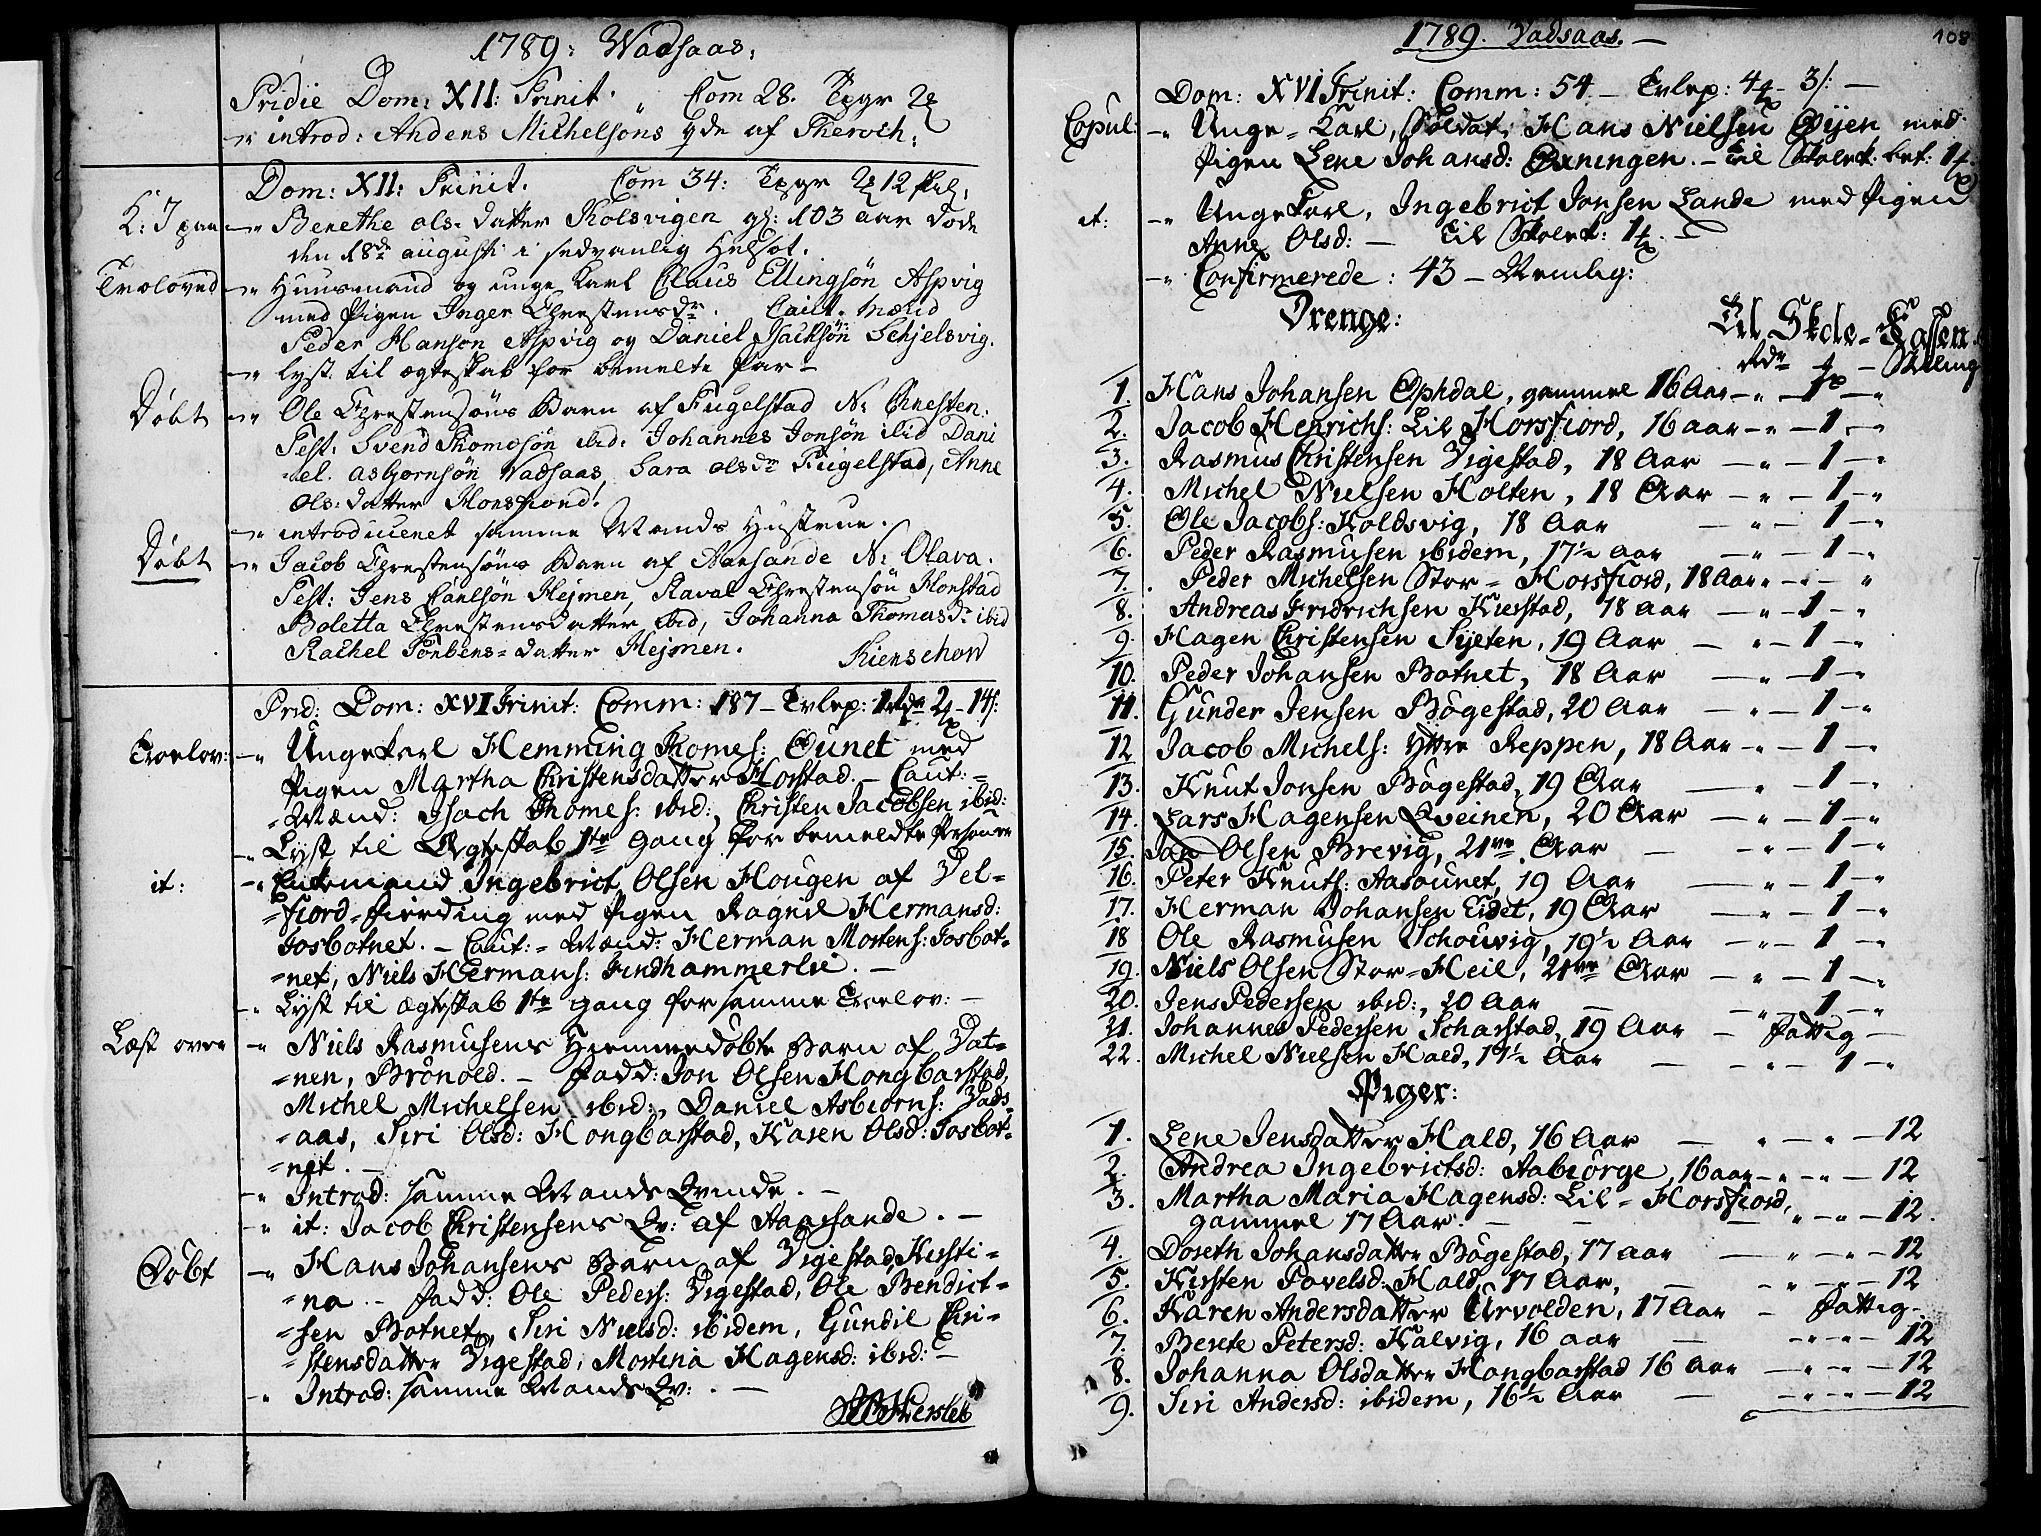 1789: Wadsaas:
Pridie Dom: XII: Trinit. " Com 28.
" introd: Anders Michelsöns af Thervich:
Dom: XII: Trinit. Com 34:
" Berethe ols-datter Kolsvigen gl: 103 aar døde
den 18de augusti i sedvanlig Helsot.
Troloved " Huusmand og unge Karl Claus Ellingsön Aspvig
med Pigen Inger Chrestensdr. Caut. mænd
Peder Hanson Aspvig og Daniel Isachsön Schjelsvig.
" lyst til ægteskab for bemelte Par –
Døbt " Ole Chrestensöns Barn af Fugelstad N: Chresten.
Test: Svend Thomæsön ibid: Johannes Jonsön ibid Dani
=el Asbjornsön Vadsaas, Sara olsdr Fugelstad, Anne
Ols: datter Horsfiord.
" introduceret samme Mands Hustrue.
Døbt " Jacob Chrestensöns Barn af Aarsande N: Olava.
Test: Jens Carlsön Hejmen, Chrestensön Horstad
Boletta Chrestensdatter ibid, Johanna Thomasdr ibid
Rachel Torbens=datter Hejmen.
Prid: Dom: XVI Trinit: Comm: 187 – 14ſ:
Trolov: " Ungekarl Hemming Thomes: Ounet med
Pigen Martha Christensdatter Horstad. – Caut:=
=Mænd: Isach Thomes: ibid:, Christen Jacobsen ibid:
" Lyst til Ægteskab 1te Gang for bemeldte Personer
it: " Enkemand Ingebrict Olsen Hougen af Vel=
=fiord=fierding med Pigen Ragnil Hermansd:
Tosbotnet. – Caut:=Mænd: Herman Mortens: Tosbot=
=net, Niels Hermans: Indhammerlie. –
" Lyst til ægteskab 1te gang for samme Trolov: –
Læst over " Niels Rasmusens Hiemmedøbte Barn af Vat=
=nen, Brönöed. – Fadd: Jon Olsen Hongbarstad,
Michel Michelsen ibid:, Daniel Asbiorns: Vads=
=aas, Siri Olsd: Hongbarstad, Karen Olsd: Tosbot=
=net. –
" Introd: samme Mands Qvinde. –
" it: Jacob Christensens Qv: af Aarsande. –
Døbt " Hans Johansens Barn af Vigestad, Kirsti=
=na. – Fadd: Ole Peders: Vigestad, Ole Bendict=
=sen Botnet, Siri Nielsd: ibidem, Gundil Chri=
=stensdatter Vigestad, Mortina Hagensd: ibid: –
" Introd: samme Mands Qv: . –
1789. Vadsaas. –
108
Dom: XVI Trinit: Comm: 54 – 3ſ: –
Copul: " Unge=Karl, Soldat, Hans Nielsen Øyen med
Pigen Lene Johansd: – til Skolek: bet: 1
it: " Ungekarl, Ingebrict Jonsen Lande med Pigen
Anne Olsd: – til Skolek: 1
" Confirmerede: 43 – Nemlig:
Drenge: Til Skole=Cassen
Rdr – Skiling
1. Hans Johansen Ophdal, gammel 16 Aar – " – 1 – "
2. Jacob Henrichs: Lil Horsfiord, 16 aar – " – 1 – "
3. Rasmus Christensen Vigestad, 18 Aar – " – 1 – "
4. Michel Nielsen Holten, 18 Aar – " – 1 – "
5. Ole Jacobs: Koldsvig, 18 Aar – " – 1 – "
6. Peder Rasmusen ibidem, 17½ aar – " – 1 – "
7. Peder Michelsen Stor=Horsfiord, 18 Aar " – " – "
8. Andreas Fridrichsen Kierstad, 18 aar – " – 1 – "
9. Hagen Christensen Sijeten, 19 Aar – " – 1 – "
10. Peder Johansen Botnet, 18 Aar – " – 1 – "
11. Gunder Jensen Bögestad, 20 Aar – " – 1 – "
12 Jacob Michels: Ytre Reppen, 18 Aar – " – 1 – "
13. Knut Jonsen Bögestad, 19 Aar – " – 1 – "
14. Lars Hagensen Qveinen, 20 Aar – " – 1 – "
15. Jon Olsen Brevig, 21ve Aar – " – 1 – "
16. Peter Knuts: Aasounet, 19 Aar – " – 1 – "
17. Herman Johansen Eidet, 19 Aar – " – 1 – "
18 Ole Rasmusen Schouvig, 19½ Aar – " – 1 – "
19. Niels Olsen Stor=Heil, 21ve Aar – " – 1 – "
20. Jens Pedersen ibid:, 20 Aar – " – 1 – "
21. Johannes Pedersen Scharstad, 19 Aar – Fattig –
22. Michel Nielsen Hald, 17½ Aar – " – 1 – "
Piger:
1. Lene Jensdatter Hald, 16 Aar – " – " – 12
2. Andrea Ingebrictsd: Aabiörge, 16 aar – " – " – 12
3. Martha Maria Hagensd: Lil=Horsfiord,
gammel 17 Aar. – – – " – " – 12.
4. Doreth Johansdatter Bögestad, 17 aar – " – " – 12
5. Kirsten Povelsd: Hald, 17 Aar, – " – " – 12
6. Karen Andersdatter Urvolden, 17 Aar – Fattig –
7. Berete Petersd: Kalvig, 16 aar – " – " – 12
8. Johanna Olsdatter Hongbarstad 16 Aar – " – " – 12
9. Siri Andersd: ibidem, 16½ Aar – " – " – 12